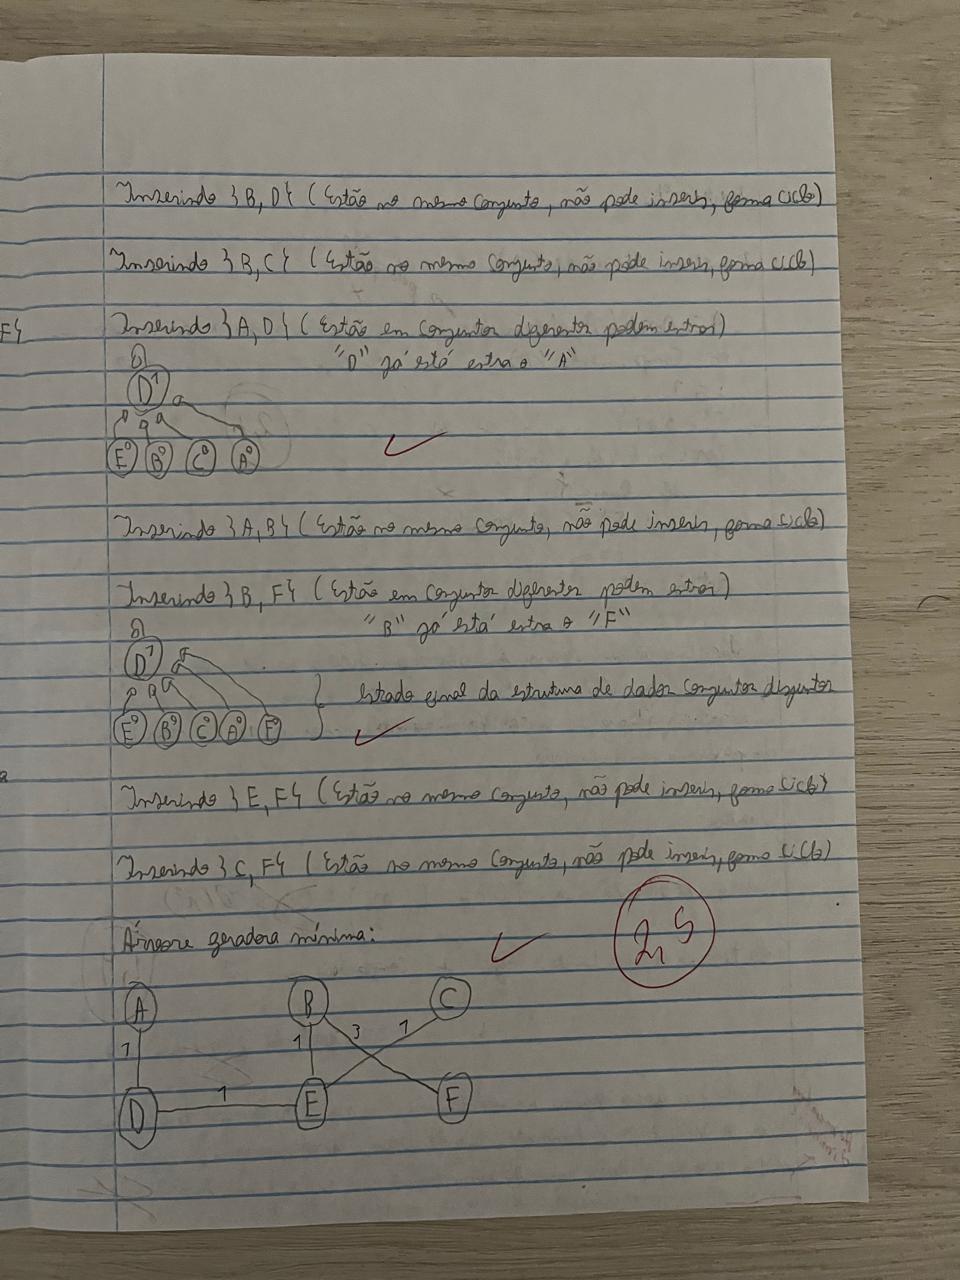 Inserindo {B, D} (Estão no mesmo conjunto, não pode inserir, forma ciclo)
Inserindo {B, C} (Estão no mesmo conjunto, não pode inserir, forma ciclo)
F}
Inserindo {A, D} (Estão em conjuntos diferentes podem entrar)
"D" já está entra o "A"
D1
E0 B0 C0 A0
Inserindo {A, B} (Estão no mesmo conjunto, não pode inserir, forma ciclo)
Inserindo {B, F} (Estão em conjuntos diferentes podem entrar)
"B" já está entra o "F"
D1
estado final da estrutura de dados conjuntos disjuntos
E0 B0 C0 A0 F0
Inserindo {E, F} (Estão no mesmo conjunto, não pode inserir, forma ciclo)
Inserindo {C, F} (Estão no mesmo conjunto, não pode inserir, forma ciclo)
2,5
Árvore geradora mínima:
A B C
1 1 3 1
1
D E F